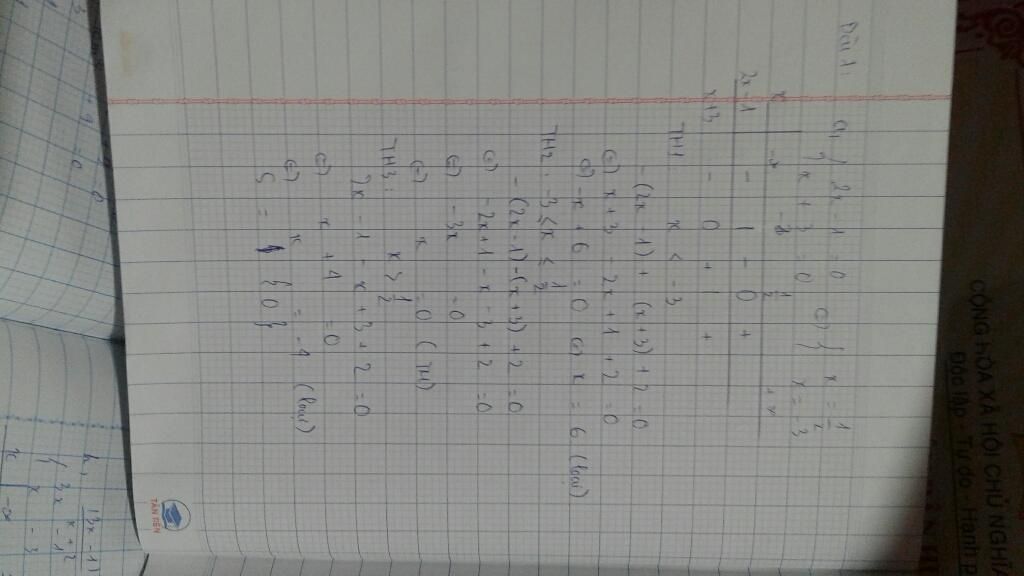 Bài 1:
a, { 2x - 1 = 0 (=) { x = 1/2
{ x + 3 = 0 x = -3
x -∞ -3 1/2 +∞
2x-1 - | - 0 +
x+3 - 0 + | +
TH1: x < -3
-(2x - 1) + (x+3) + 2 = 0
(=) x+3 - 2x + 1 + 2 = 0
(=) -x + 6 = 0 (=) x = 6 (loại)
TH2: -3 ≤ x ≤ 1/2
- (2x-1) - (x+3) + 2 = 0
(=) - 2x + 1 - x - 3 + 2 = 0
(=) - 3x = 0
(=) x = 0 (TM)
TH3: x > 1/2
2x - 1 - x + 3 + 2 = 0
(=) x + 4 = 0
(=) x = -4 (loại)
S = { 0 }
TÂN TIẾN
CỘNG HÒA XÃ HỘI CHỦ NGHĨA
Độc lập - Tự do - Hạnh p
b, |3x - 1|
{ 3x - 1
x - 3
x -∞